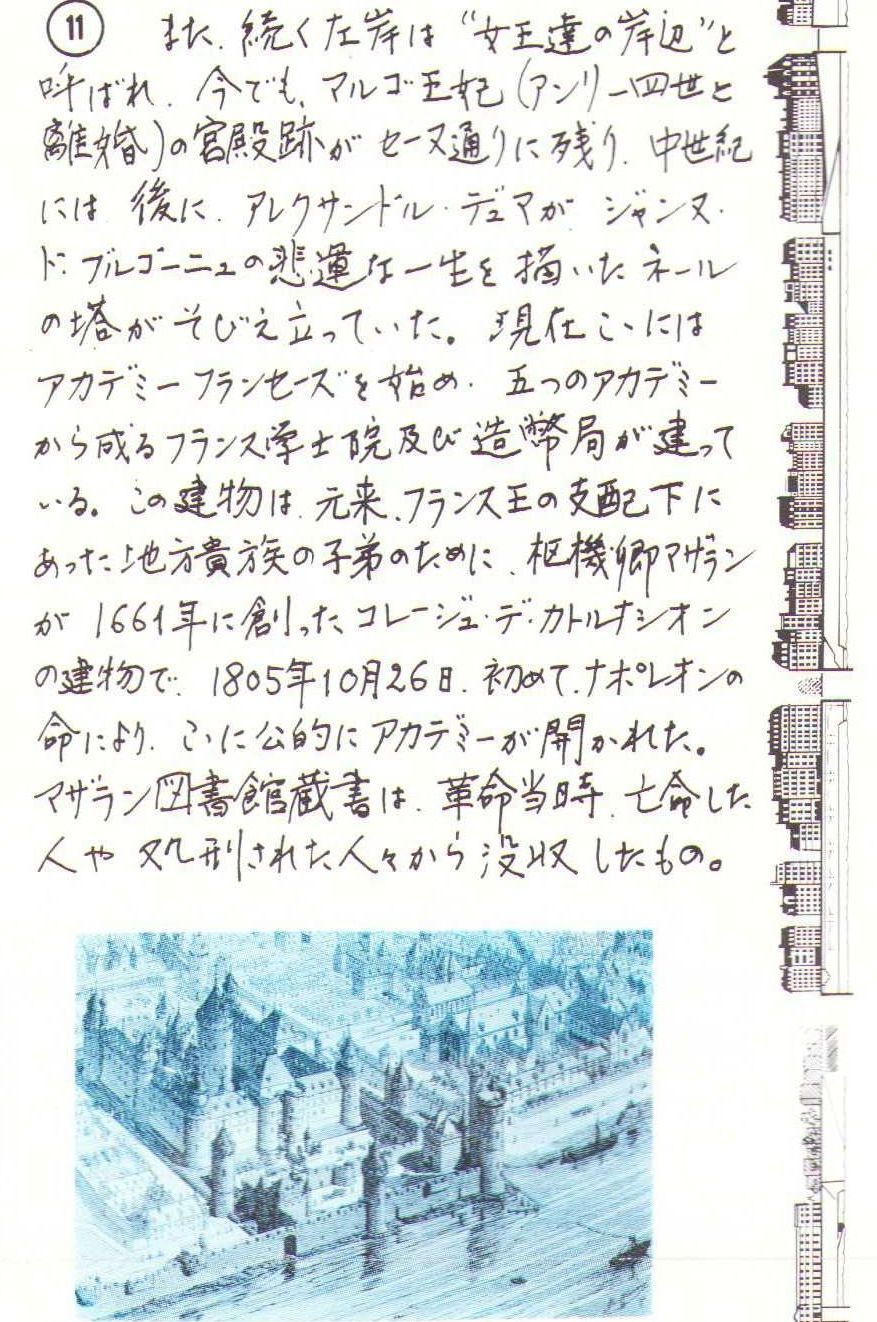 11 また、続く左岸は“女王達の岸辺”と
呼ばれ、今でも、マルゴ王妃(アンリ一四世と
離婚)の宮殿跡がセーヌ通りに残り、中世紀
には、後に、アレクサンドル・デュマが ジャンヌ・
ド・ブルゴーニュの悲運な一生を描いたネール
の塔がそびえ立っていた。現在こゝには
アカデミーフランセーズを始め、五つのアカデミー
から成るフランス学士院及び造幣局が建って
いる。この建物は、元来、フランス王の支配下に
あった地方貴族の子弟のために、枢機卿マザラン
が1661年に創ったコレージュ・デ・カトルナシオン
の建物で、1805年10月26日、初めて、ナポレオンの
命により、こゝに公的にアカデミーが開かれた。
マザラン図書館蔵書は、革命当時、亡命した
人や処刑された人々から没収したもの。